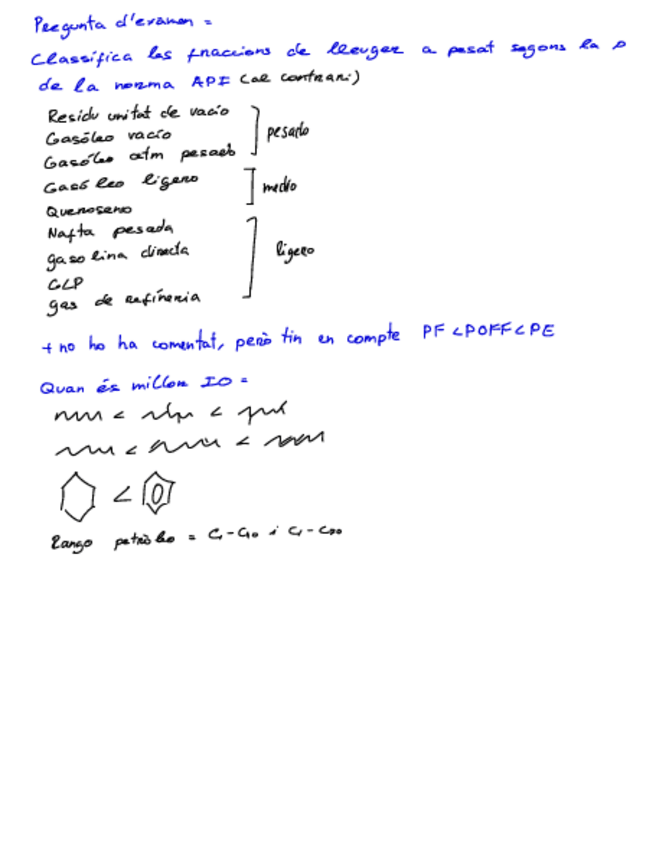 Pregunta d'examen =
Classifica les fraccions de lleuger a pesat segons la ρ
de la norma API (al contrari)
Residu unitat de vacío
Gasóleo vacío
Gasóleo atm pesado
pesado
Gasóleo ligero
medio
Queroseno
Nafta pesada
gasolina directa
ligero
GLP
gas de refineria
+ no ho ha comentat, però tin en compte PF < POFF < PE
Quan és millor IO =
<
<
<
<
<
Rango petróleo =